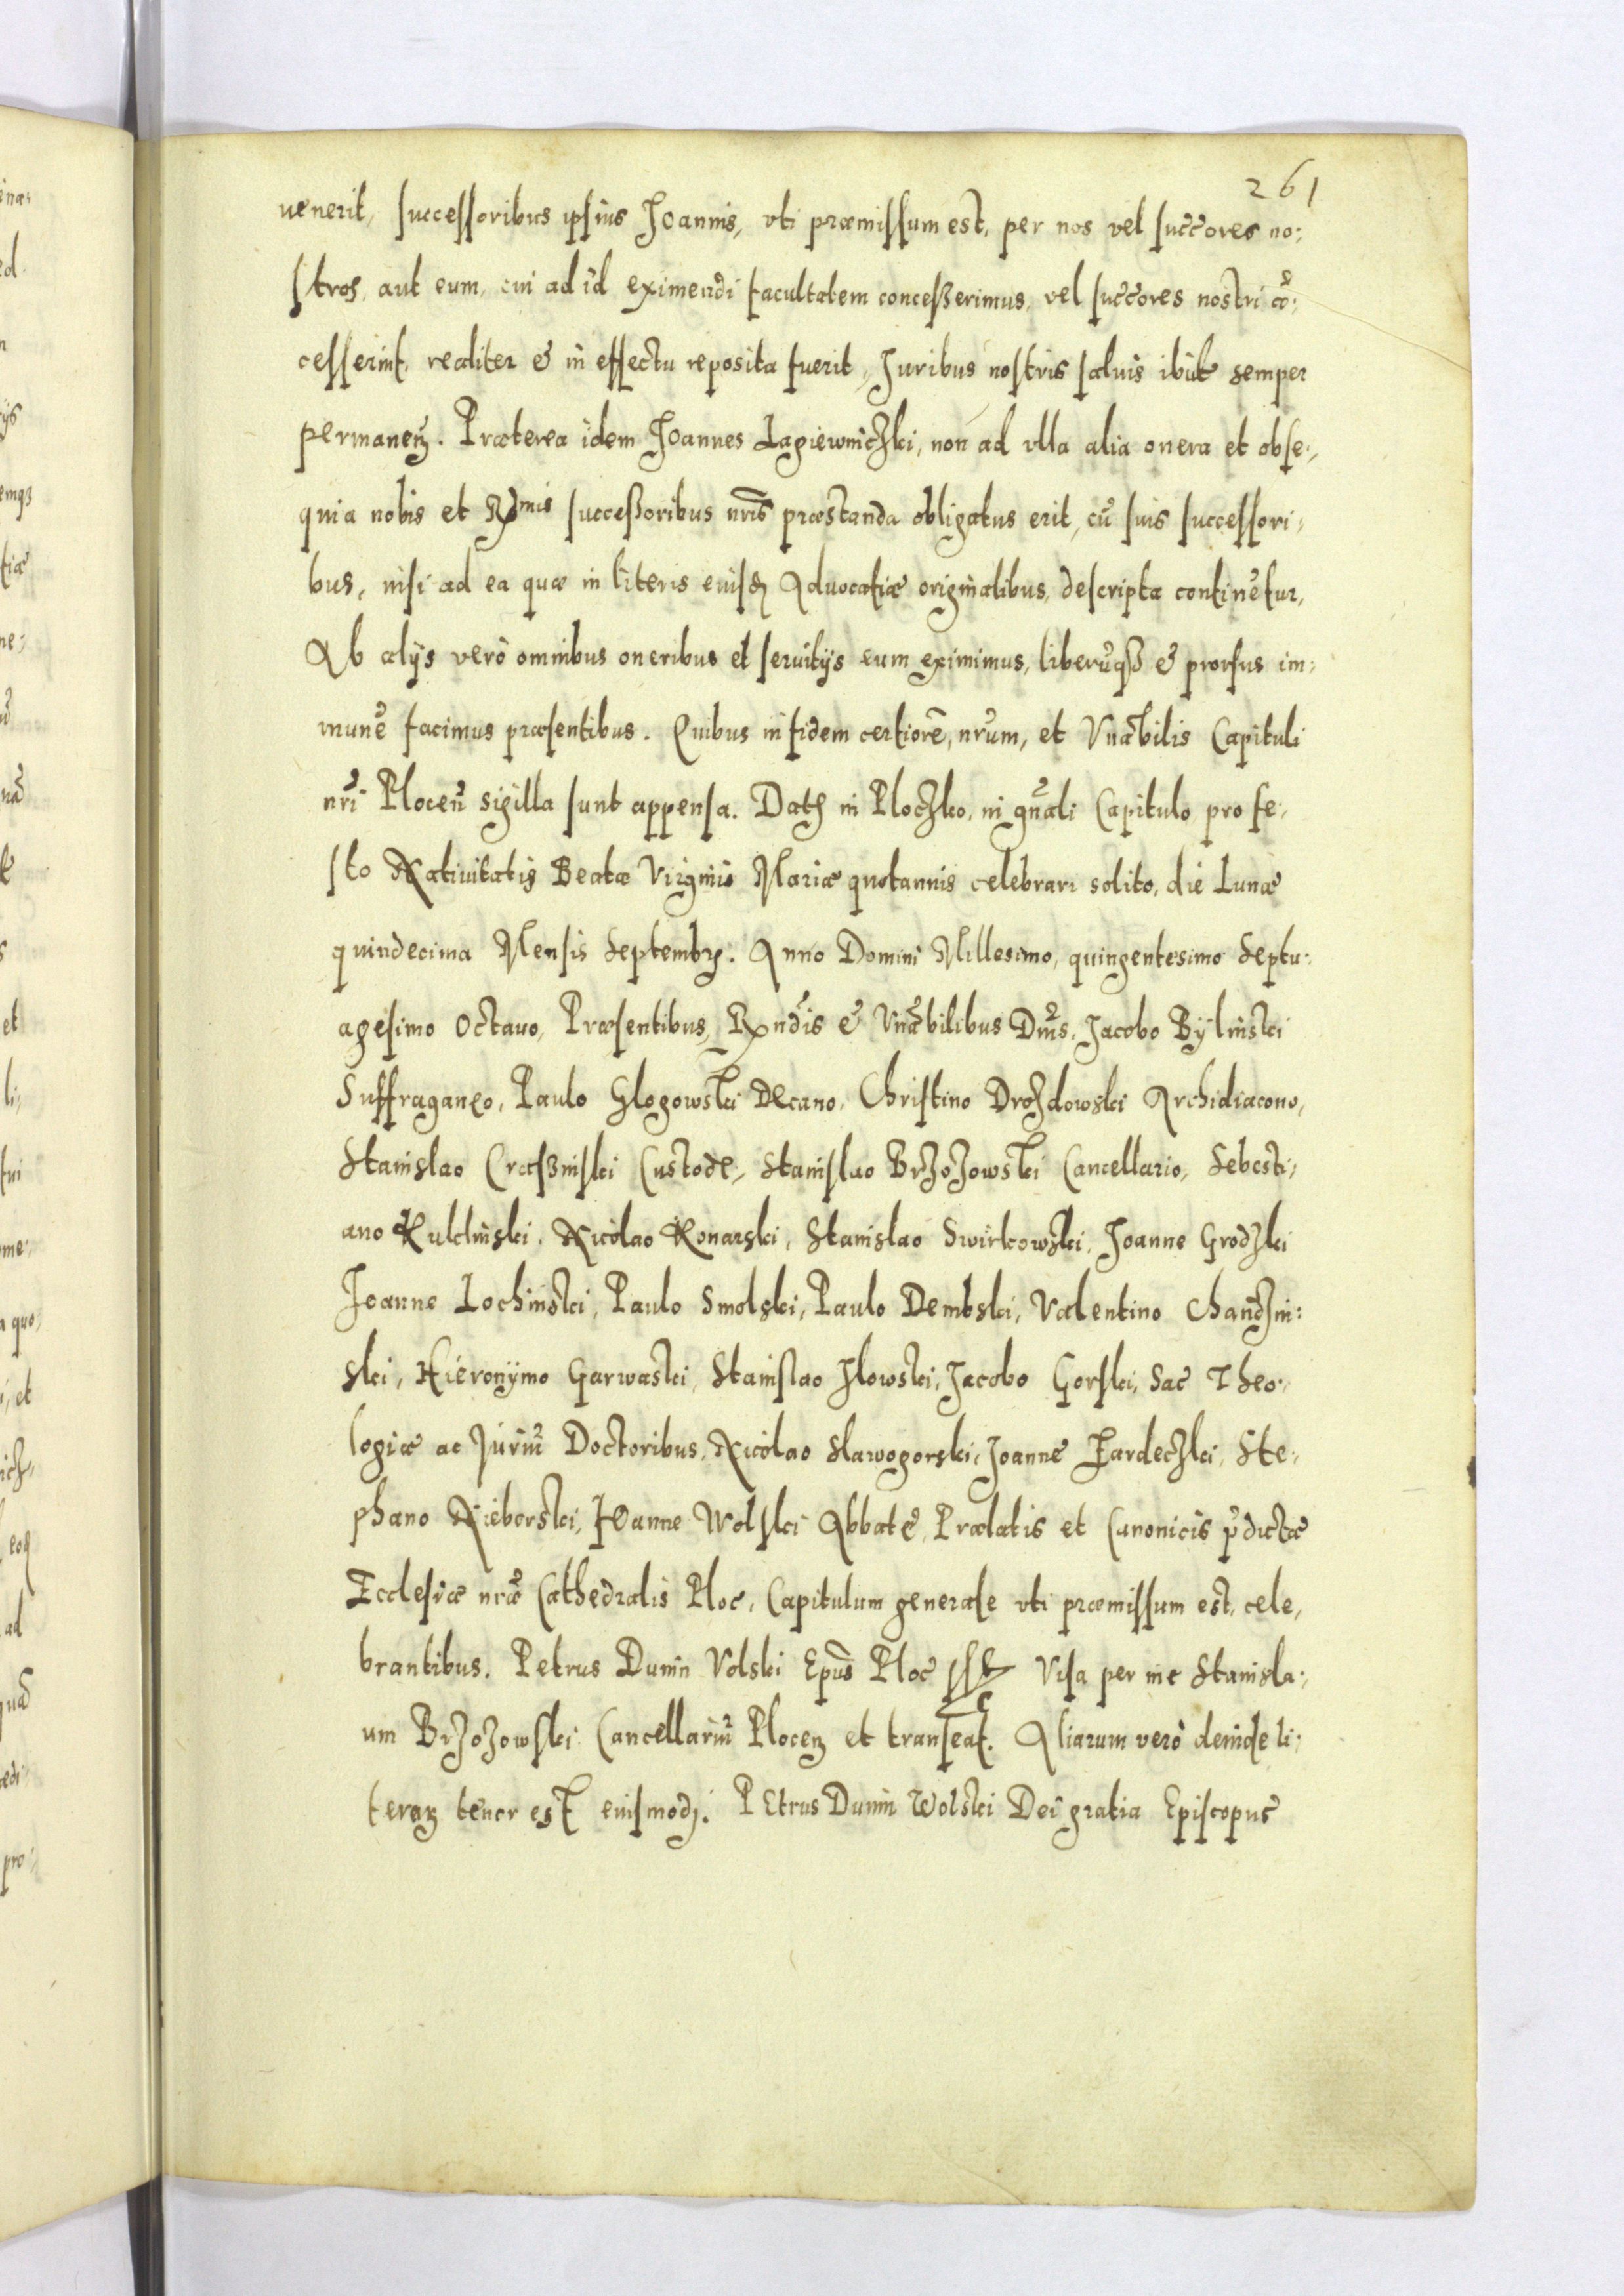 261
uenerit, successoribus ipsius Joannis, vti præmissum est, per nos vel succ̃ores no:
stros, aut eum, cui ad id eximendi facultatem concesserimus, vel succ̃ores nostri cõ:
cesserint, realiter & in effectu reposita fuerit, Juribus nostris saluis ibid̃ semper
permaneñ. Præterea idem Joannes Lagiewniczki, non ad vlla alia onera et obse:
quia nobis et Rmis successoribus nr̃is præstanda obligatus erit, cũ suis successori:
bus, nisi ad ea quæ in literis eiusdẽ Aduocatiæ originalibus, descripta continẽtur,
Ab alijs verò omnibus oneribus et seruitijs eum eximimus, liberũq3 & prorsus im:
munẽ facimus præsentibus. Quibus in fidem certiorẽ, nr̃um, et Vnãbilis Capituli
nr̃i Ploceñ sigilla sunt appensa. Dat̃ in Ploczko, in gñali Capitulo pro fe:
sto Natiuitatis Beatæ Virginis Mariæ quotannis celebrari solito, die Lunæ
quindecima Mensis Septembr̃. Anno Domini Millesimo, quingentesimo Septu:
agesimo Octauo, Præsentibus, Rñdis & Vnãbilibus Dñis, Jacobo Bÿlinski
Suffraganeo, Paulo Glogowski Decano, Christino Drozdowski Archidiacono,
Stanislao Crassniski Custode, Stanislao Brzozowski Cancellario, Sebasti:
ano Kulclinski, Nicolao Konarski, Stanislao Swirkowski, Joanne Grodzki
Joanne Lochinski, Paulo Smolski, Paulo Dembski, Valentino Chandzin:
ski, Hieronÿmo Garwaski, Stanislao Ilowski, Jacobo Gorski, Sac̃ Theo:
logiæ ac Juriũ Doctoribus, Nicolao Slawogorski, Joanne Pardeczki, Ste:
phano Nieborski, Joanne Wolski Abbate, Prælatis et Canonicis p̃dictæ
Ecclesiæ nr̃æ Cathedralis Ploc̃, Capitulum generale vti præmissum est, cele:
brantibus. Petrus Dunin Volski Ep̃us Ploc̃ sst Visa per me Stanisla:
um Brzozowski Cancellariũ Ploceñ et transeat. Aliarum verò deinde li:
terar̃ tenor est eiusmodj. PEtrus Dunin Wolski Dei gratia Episcopus